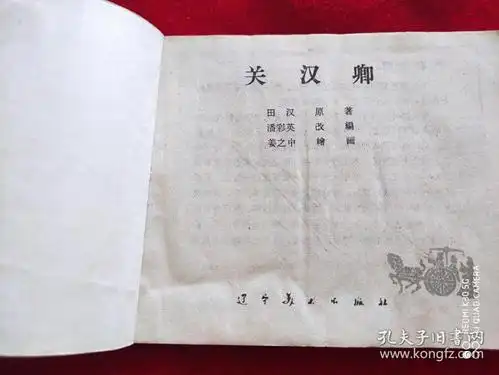 关汉卿
田汉 原著
潘彩英 改编
姜之中 繪画
辽宁美术出版社
REDMI K30 5G
AI QUAD CAMERA
孔夫子旧书网
www.kongfz.com